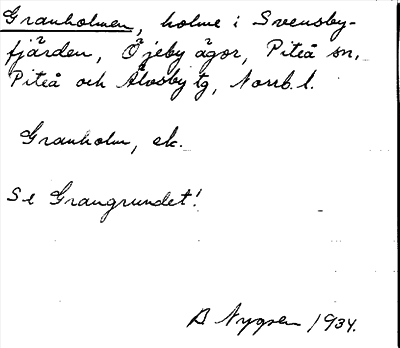 Granholmen, holme i Svensby-
fjärden, Öjeby ägor, Piteå sn,
Piteå och Älvsby tg, Norrb. l.
Granholm, ek.
Se Grangrundet!
1934.